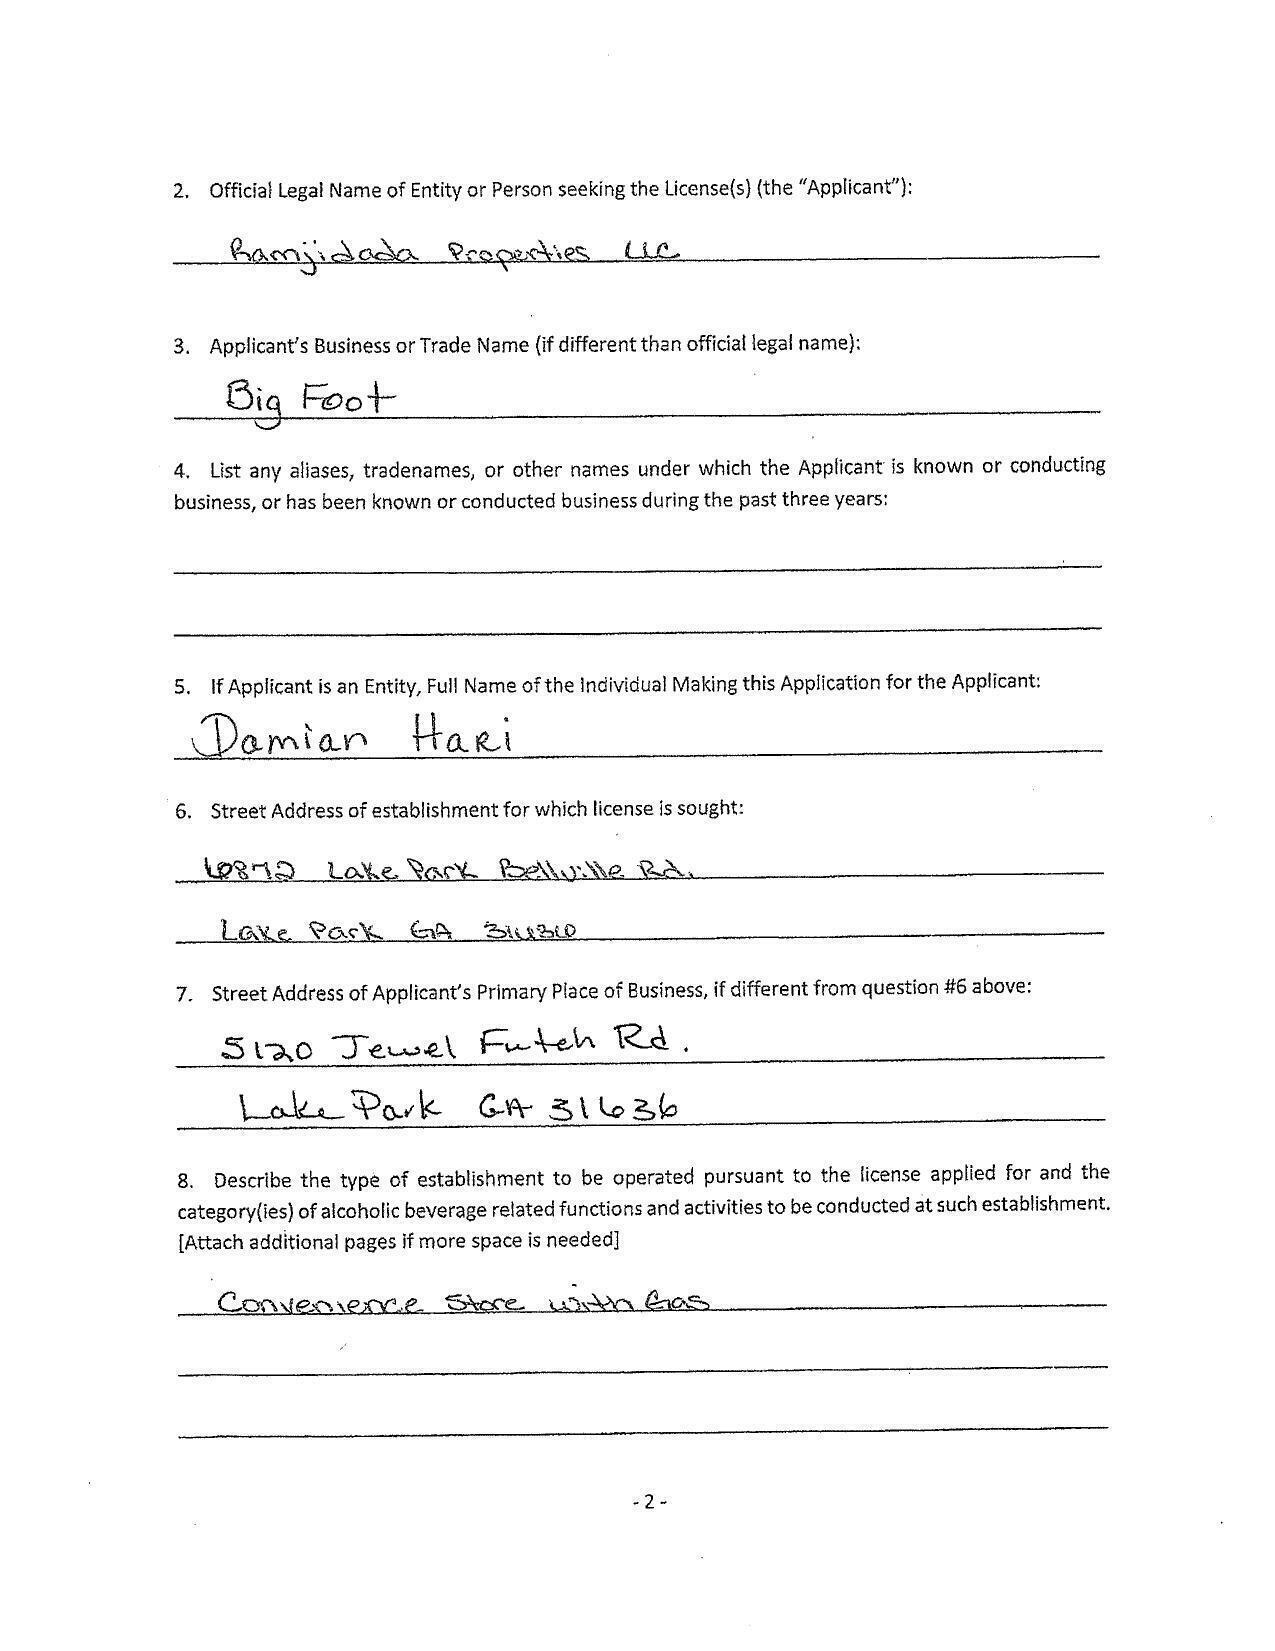 2. Official Legal Name of Entity or Person seeking the License(s) (the “Applicant”):
Ramjidada Properties LLC
3. Applicant’s Business or Trade Name (if different than official legal name):
Big Foot
4. List any aliases, tradenames, or other names under which the Applicant is known or conducting
business, or has been known or conducted business during the past three years:
5. If Applicant is an Entity, Full Name of the Individual Making this Application for the Applicant:
Damian Hari
6. Street Address of establishment for which license is sought:
Lake Park Bellville Rd.
Lake Park GA
7. Street Address of Applicant’s Primary Place of Business, if different from question #6 above:
5120 Jewel Futch Rd.
Lake Park GA 31636
8. Describe the type of establishment to be operated pursuant to the license applied for and the
category(ies) of alcoholic beverage related functions and activities to be conducted at such establishment.
[Attach additional pages if more space is needed]
Convenience Store with Gas
- 2 -